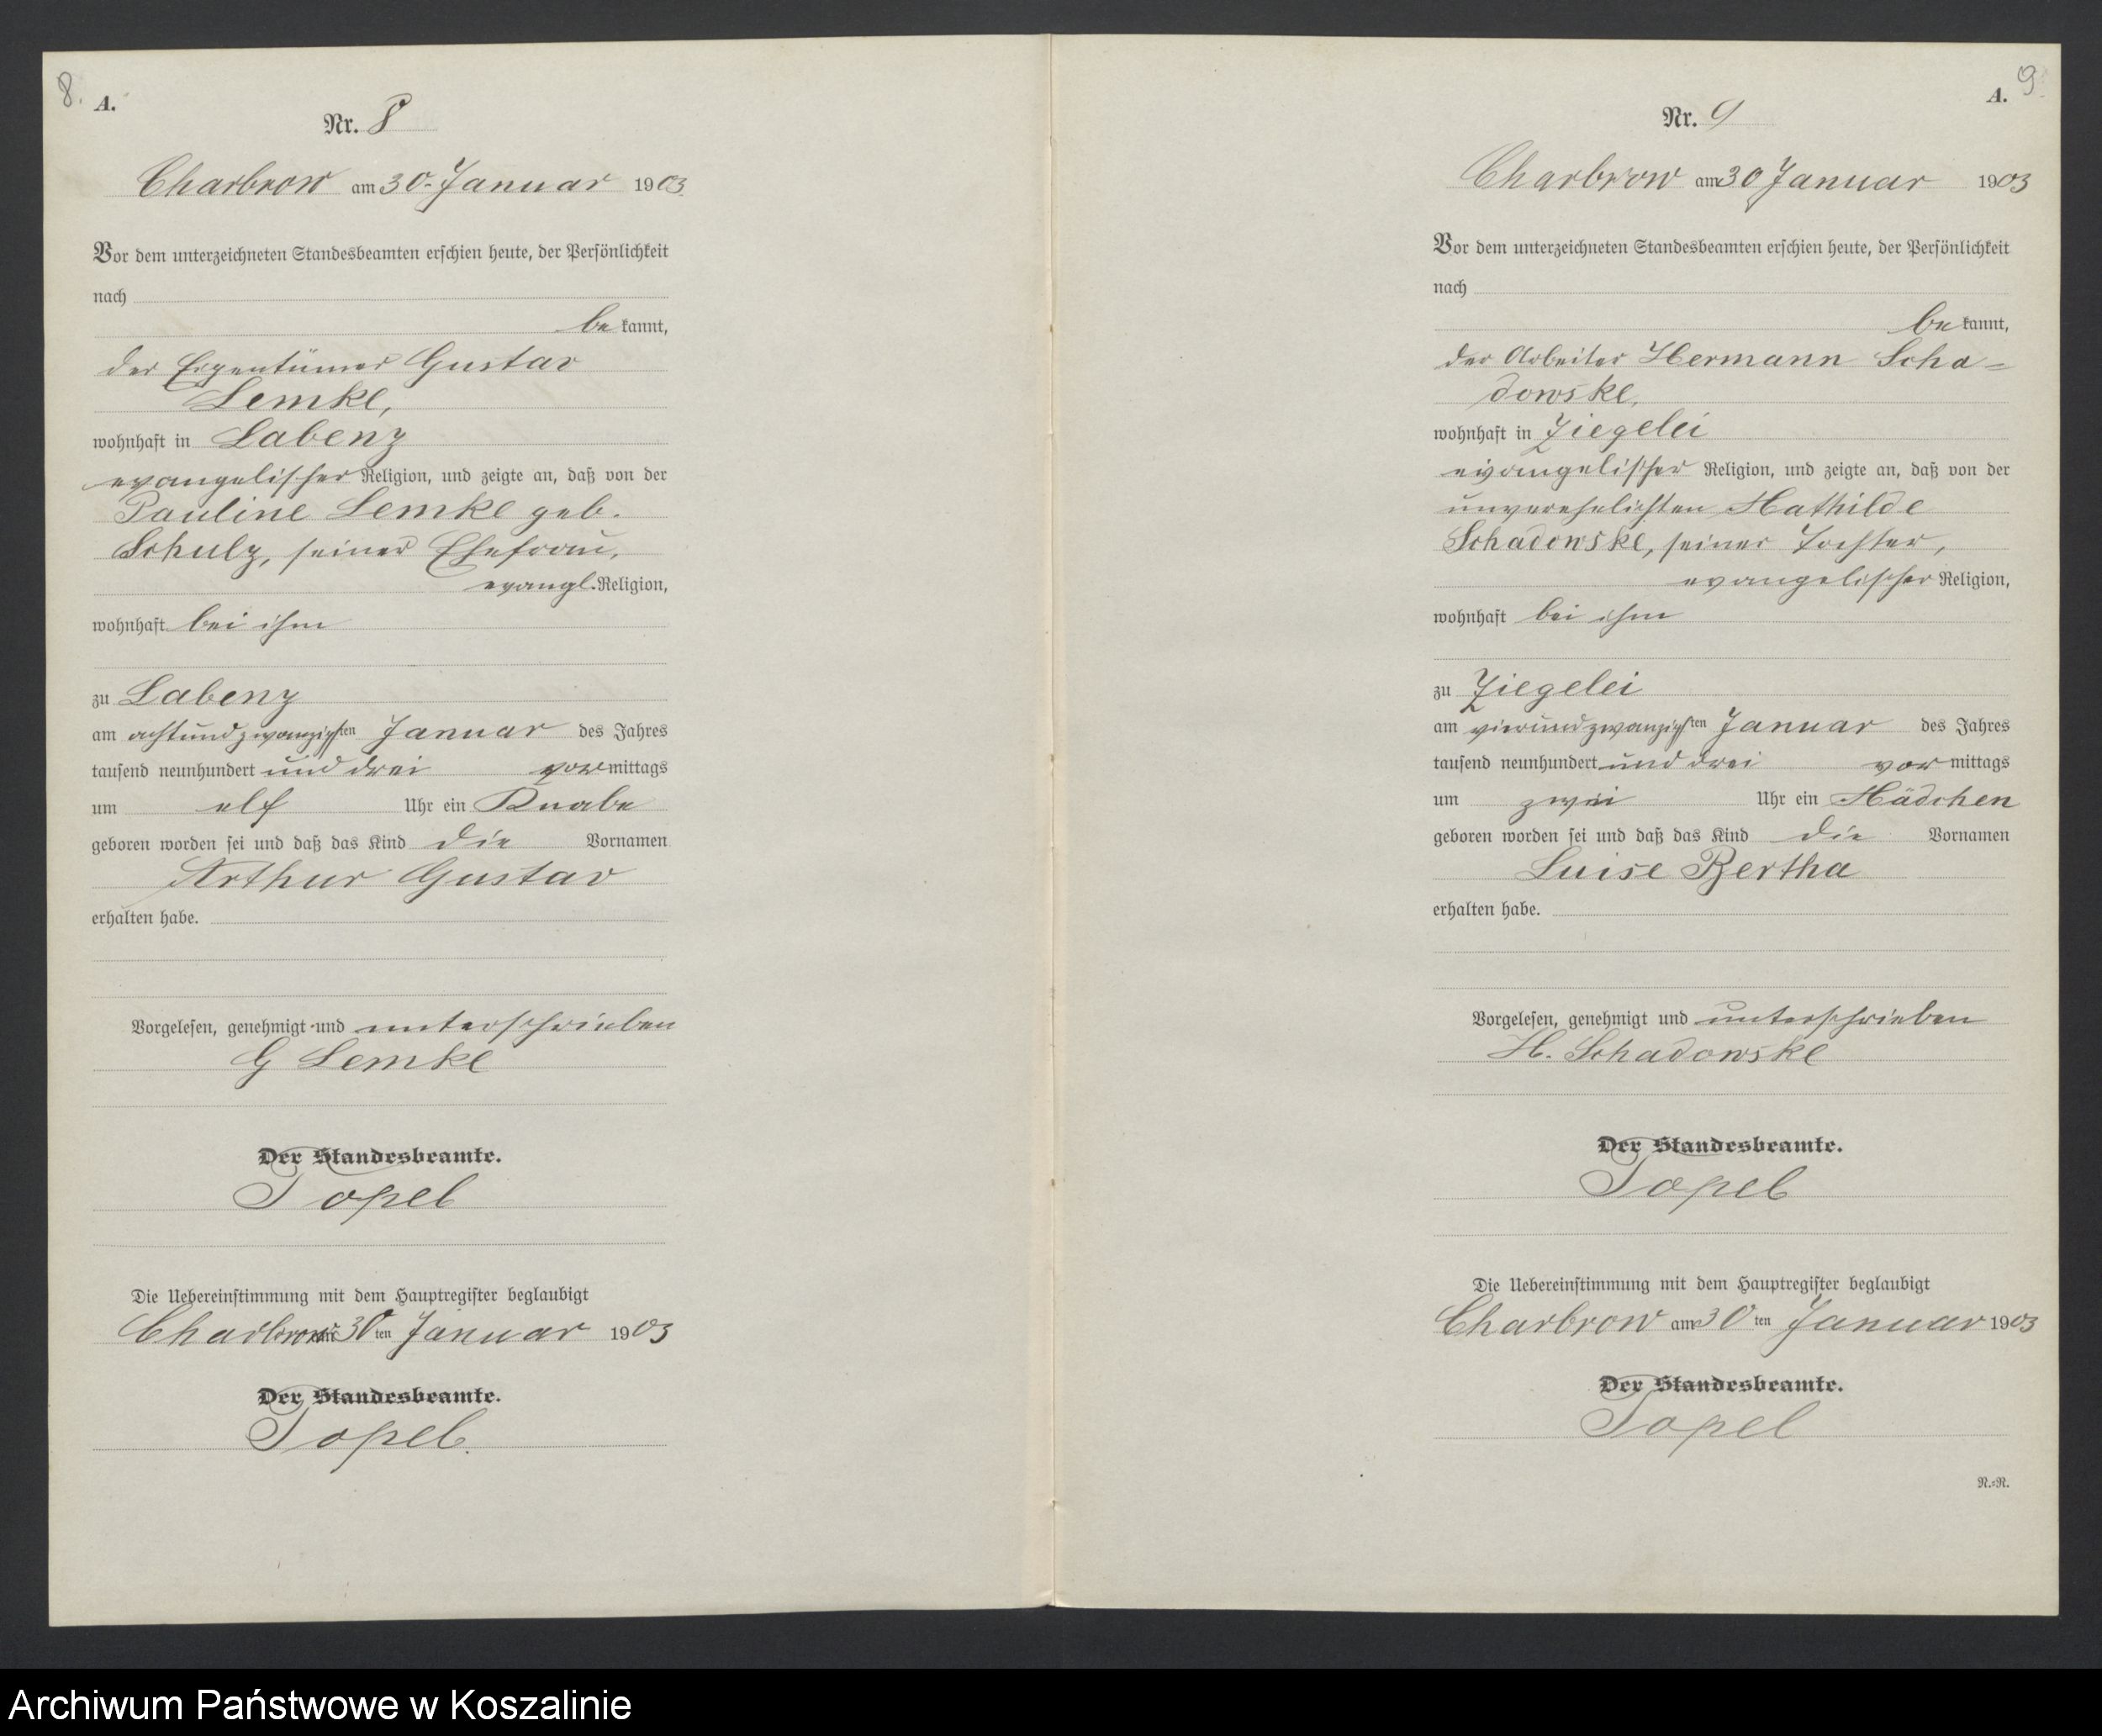 8.
A.
Nr. 8
Charbrow am 30. Januar 1903
Vor dem unterzeichneten Standesbeamten erschien heute, der Persönlichkeit
nach
bekannt,
der Eigentümer Gustav
Lemke,
wohnhaft in Labenz
evangelischer Religion, und zeigte an, daß von der
Pauline Lemke geb.
Schulz, seiner Ehefrau,
evangl. Religion,
wohnhaft bei ihm
zu Labenz
am achtundzwanzigsten Januar des Jahres
tausend neunhundert und drei vormittags
um elf Uhr ein Knabe
geboren worden sei und daß das Kind die Vornamen
Arthur Gustav
erhalten habe.
Vorgelesen, genehmigt und unterschrieben
G Lemke
Der Standesbeamte.
Topel
Die Uebereinstimmung mit dem Hauptregister beglaubigt
Charbrow am 30ten Januar 1903
Der Standesbeamte.
Topel.
9.
A.
Nr. 9
Charbrow am 30 Januar 1903
Vor dem unterzeichneten Standesbeamten erschien heute, der Persönlichkeit
nach
bekannt,
der Arbeiter Hermann Scha-
dowske,
wohnhaft in Ziegelei
evangelischer Religion, und zeigte an, daß von der
unverehelichten Mathilde
Schadowske, seiner Tochter,
evangelischer Religion,
wohnhaft bei ihm
zu Ziegelei
am vierundzwanzigsten Januar des Jahres
tausend neunhundert und drei vormittags
um zwei Uhr ein Mädchen
geboren worden sei und daß das Kind die Vornamen
Luise Bertha
erhalten habe.
Vorgelesen, genehmigt und unterschrieben
H. Schadowske
Der Standesbeamte.
Topel
Die Uebereinstimmung mit dem Hauptregister beglaubigt
Charbrow am 30ten Januar 1903
Der Standesbeamte.
Topel
N.=R.
Archiwum Państwowe w Koszalinie